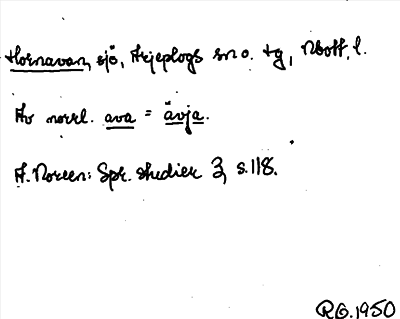 Hornavan, sjö, Arjeplogs sn o. tg, Nbott. l.
Av norrl. ava = ävja.
A. Noreen: Spr. studier 3, s. 118.
RG. 1950